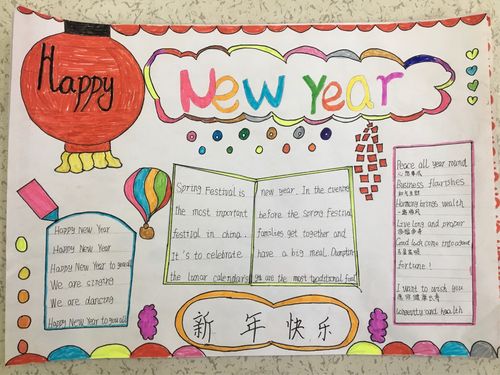 Happy
New Year
Happy New Year
Happy New Year
Happy New Year to you all
We are singing
We are dancing
Happy New Year to you all
Spring Festival is
the most important
festival in china.
It's to celebrate
the lunar calendar's
new year. In the evening
before the Spring Festival
families get together and
have a big meal. Dumplin
gs are the most traditional food
Peace all year round
Business flourishes
Harmony brings wealth
Live long and proper
Good luck come into
fortune!
I want to wish you
longevity and health
新年快乐